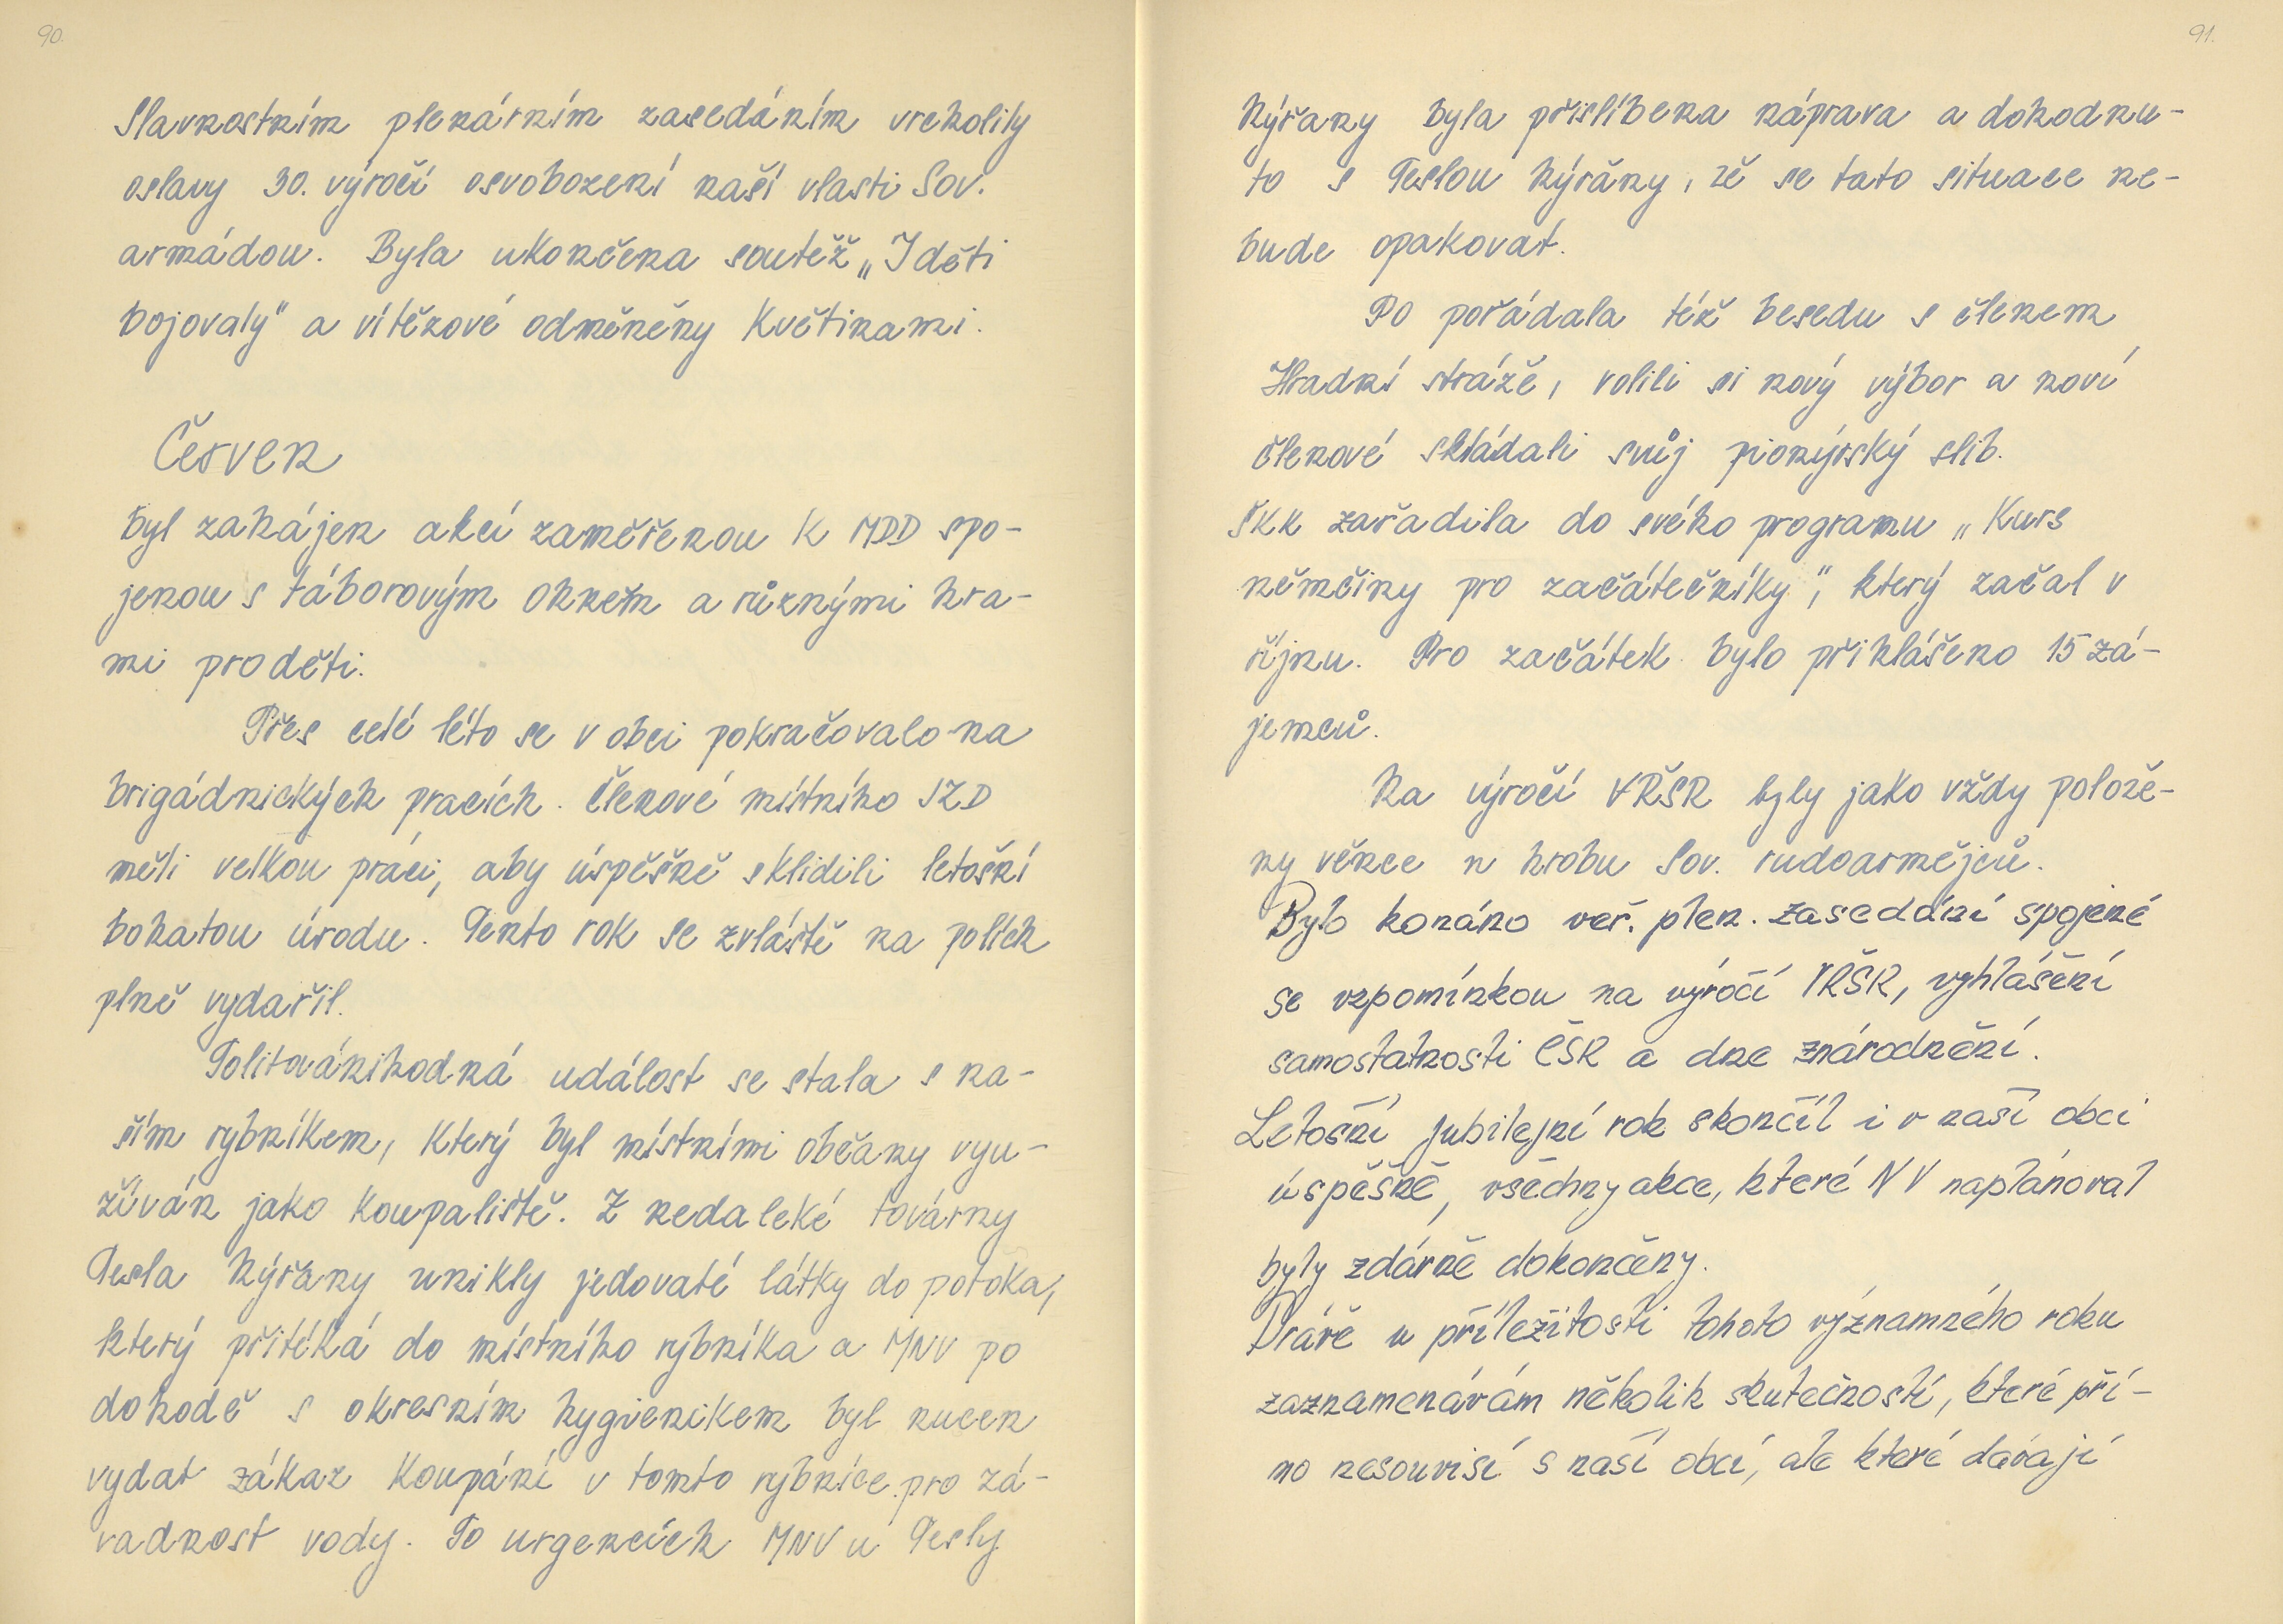 90.
Slavnostním plenárním zasedáním vrcholily
oslavy 30. výročí osvobození naší vlasti Sov.
armádou. Byla ukončena soutěž „I děti
bojovaly" a vítězové odměněny květinami.
Červen
byl zahájen akcí zaměřenou k MDD spo-
jenou s táborovým ohněm a různými hra-
mi pro děti.
Přes celé léto se v obci pokračovalo na
brigádnických pracích. Členové místního JZD
měli velkou práci, aby úspěšně sklidili letošní
bohatou úrodu. Tento rok se zvláště na polích
plně vydařil.
Politováníhodná událost se stala s na-
ším rybníkem, který byl místními občany vyu-
žíván jako koupaliště. Z nedaleké továrny
Tesla Nýřany unikly jedovaté látky do potoka,
který přitéká do místního rybníka a MNV po
dohodě s okresním hygienikem byl nucen
vydat zákaz koupání v tomto rybníce pro zá-
vadnost vody. Po urgencích MNV u Tesly
91.
Nýřany byla přislíbena náprava a dohodnu-
to s Teslou Nýřany, že se tato situace ne-
bude opakovat.
PO pořádala též besedu s členem
Hradní stráže, volili si nový výbor a noví
členové skládali svůj pionýrský slib.
ŠKK zařadila do svého programu „Kurs
němčiny pro začátečníky", který začal v
říjnu. Pro začátek bylo přihlášeno 15 zá-
jemců.
Na výročí VŘSR byly jako vždy polože-
ny věnce u hrobu Sov. rudoarmějců.
Bylo konáno veř. plen. zasedání spojené
se vzpomínkou na výročí VŘSR, vyhlášení
samostatnosti ČSR a dne znárodnění.
Letošní jubilejní rok skončil i v naší obci
úspěšně, všechny akce, které NV naplánoval
byly zdárně dokončeny.
Právě u příležitosti tohoto významného roku
zaznamenávám několik skutečností, které pří-
mo nesouvisí s naší obcí, ale které dávají